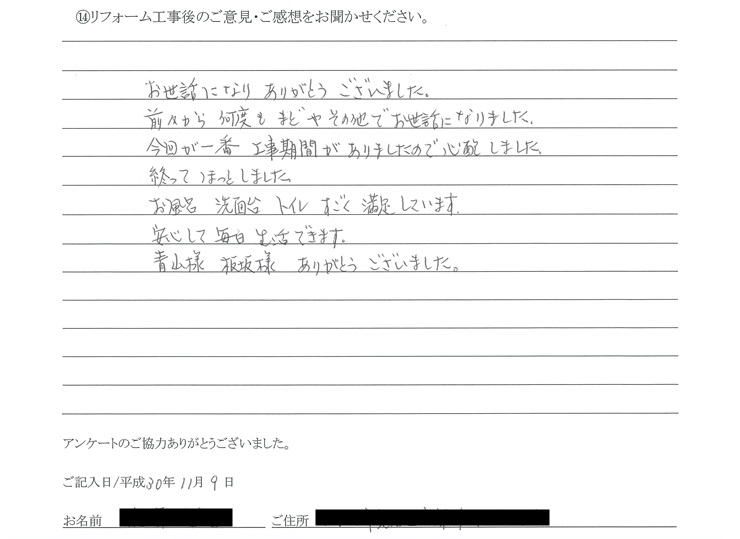 ⑭リフォーム工事後のご意見・ご感想をお聞かせください。
お世話になり ありがとう ございました。
前々から 何度も まどや その他で お世話になりました。
今回が一番 工事期間が ありましたので 心配しました。
終って ほっとしました。
お風呂 洗面台 トイレ すごく 満足しています。
安心して 毎日 生活できます。
青山様 板坂様 ありがとう ございました。
アンケートのご協力ありがとうございました。
ご記入日/平成30年11月9日
お名前 ご住所